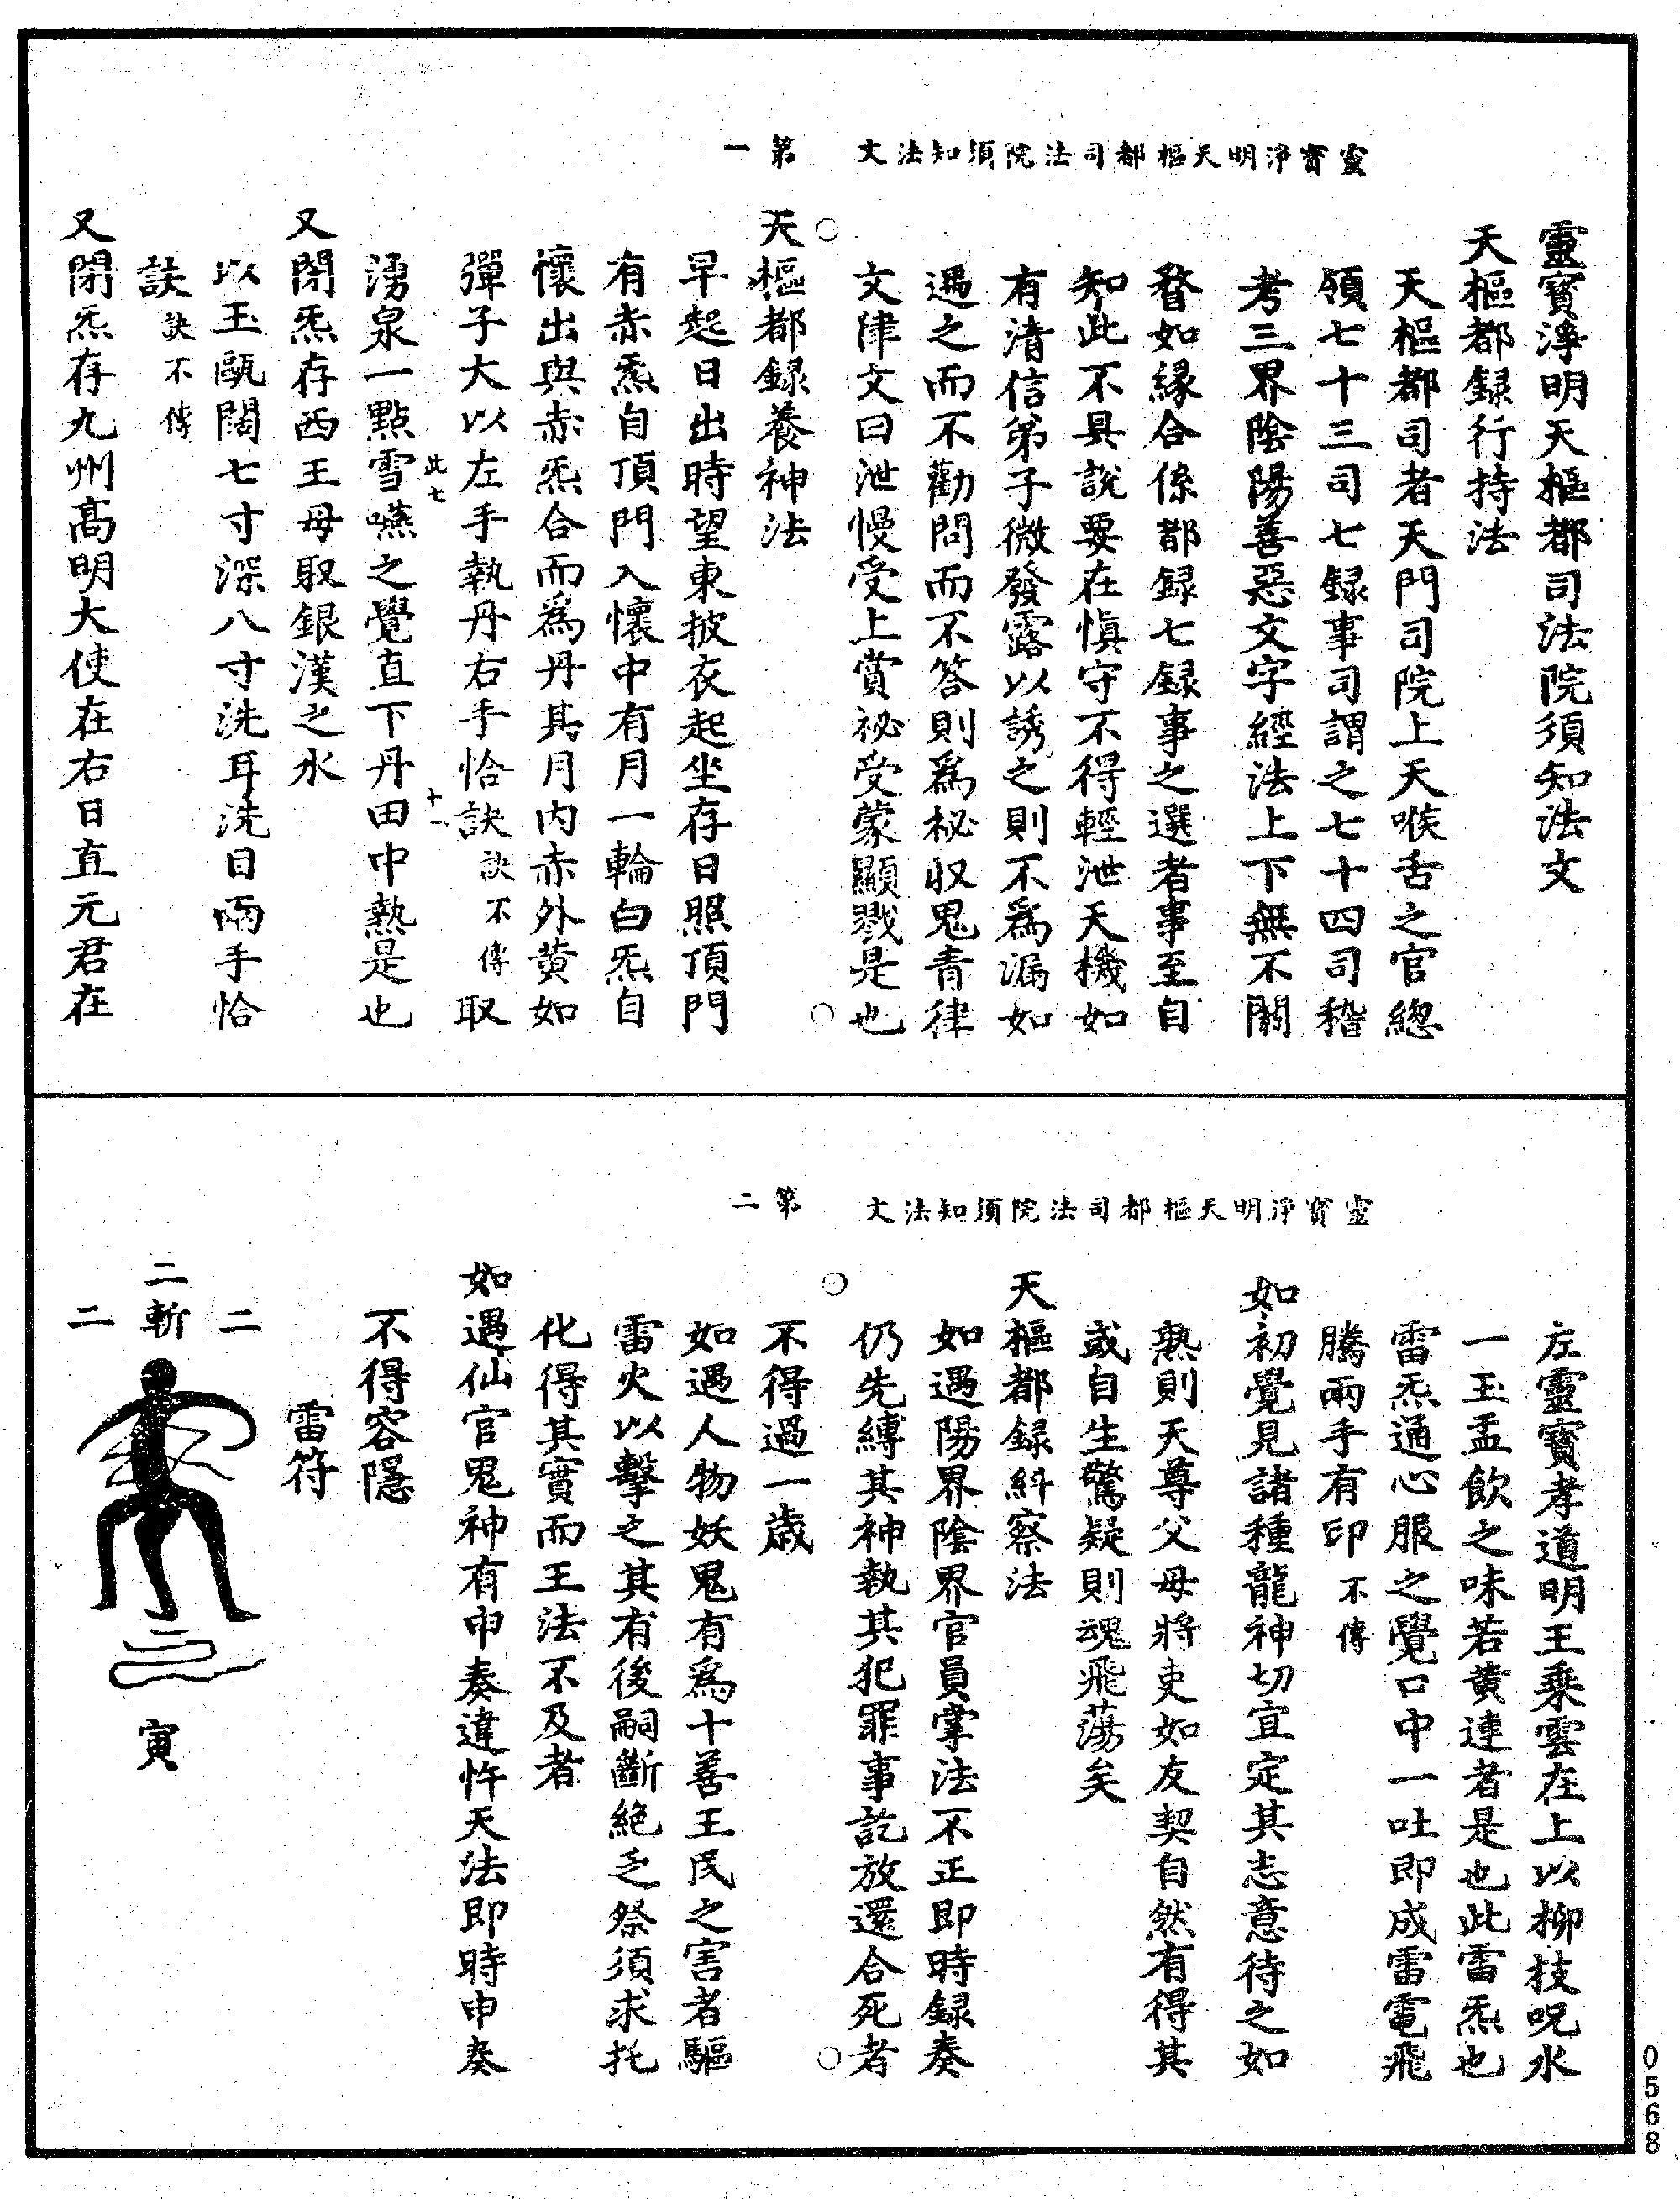 靈寳淨明天樞都司法院須知法文　第一
靈寳淨明天樞都司法院須知法文
天樞都録行持法
天樞都司者天門司院上天喉舌之官緫
領七十三司七録事司謂之七十四司稽
考三界陰陽善惡文字經法上下無不關
督如縁合係都録七録事之選者事至自
知此不具説要在慎守不得輕泄天機如
有清信弟子微發露以誘之則不爲漏如
遇之而不勸問而不答則爲秘収鬼青律
文律文曰泄慢受上賞祕受蒙顯戮是也
天樞都録養神法
早起日出時望東披衣起坐存日照頂門
有赤炁自頂門入懷中有月一輪白炁自
懷出與赤炁合而爲丹其月内赤外黄如
彈子大以左手執丹右手恰訣訣不傳取
此七　十一
湧泉一點雪嚥之覺直下丹田中熱是也
又閉炁存西王母取銀漢之水
以玉甌闊七寸深八寸洗耳洗目兩手恰
訣訣不傳
又閉炁存九州髙明大使在右日直元君在
靈寳淨明天樞都司法院須知法文　第二
左靈寳孝道明王乘雲在上以柳枝呪水
一玉盂飲之味若黄連者是也此雷炁也
雷炁通心服之覺口中一吐即成雷電飛
騰兩手有印不傳
如初覺見諸種龍神切宜定其志意待之如
熟則天尊父母將吏如友契自然有得其
或自生驚疑則魂飛蕩矣
天樞都録糾察法
如遇陽界陰界官員掌法不正即時録奏
仍先縛其神執其犯罪事訖放還合死者
不得過一歳
如遇人物妖鬼有爲十善王民之害者驅
雷火以擊之其有後嗣斷絶乏祭須求托
化得其實而王法不及者
如遇仙官鬼神有申奏違忤天法即時申奏
不得容隱
雷符
二
二斬
二
寅
0568